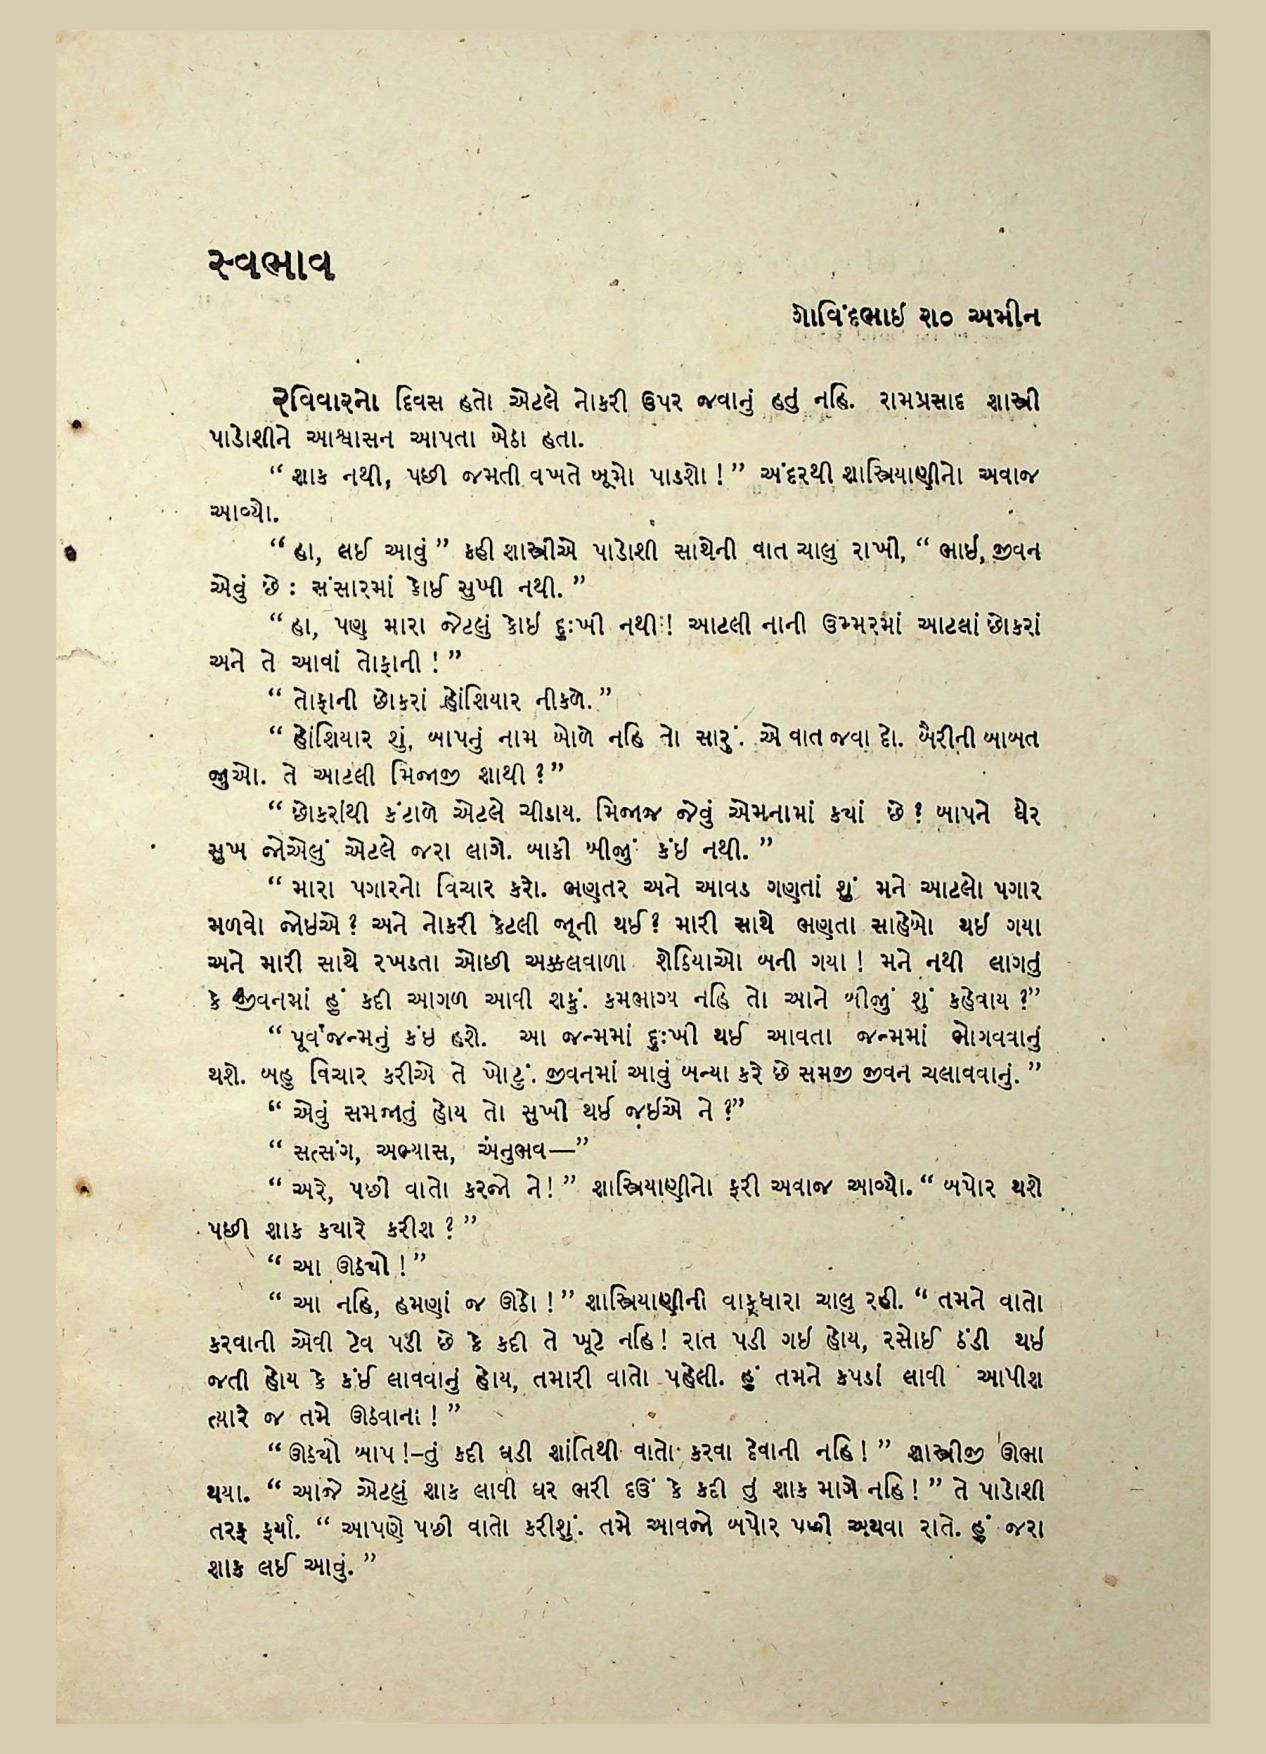 સ્વભાવ
ગોવિંદભાઈ રા૦ અમીન
રવિવારનો દિવસ હતો એટલે નોકરી ઉપર જવાનું હતું નહિ. રામપ્રસાદ શાસ્ત્રી
પાડોશીને આશ્વાસન આપતા બેઠા હતા.
“ શાક નથી, પછી જમતી વખતે બૂમો પાડશો ! ” અંદરથી શાસ્ત્રિયાણીનો અવાજ
આવ્યો.
“ હા, લઈ આવું ” કહી શાસ્ત્રીએ પાડોશી સાથેની વાત ચાલુ રાખી, “ ભાઇ, જીવન
એવું છે : સંસારમાં કોઈ સુખી નથી. ”
“ હા, પણ મારા જેટલું કોઇ દુઃખી નથી ! આટલી નાની ઉમ્મરમાં આટલાં છોકરાં
અને તે આવાં તોફાની ! ”
“ તોફાની છોકરાં હોંશિયાર નીકળે. ”
“ હોંશિયાર શું, બાપનું નામ બોળે નહિ તો સારું. એ વાત જવા દો. બૈરીની બાબત
જુઓ. તે આટલી મિજાજી શાથી ? ”
“ છોકરાંથી કંટાળે એટલે ચીડાય. મિજાજ જેવું એમનામાં ક્યાં છે ? બાપને ઘેર
સુખ જોએલું એટલે જરા લાગે. બાકી બીજું કંઇ નથી. ”
“ મારા પગારનો વિચાર કરો. ભણતર અને આવડ ગણતાં શું મને આટલો પગાર
મળવો જોઇએ ? અને નોકરી કેટલી જૂની થઈ ? મારી સાથે ભણતા સાહેબો થઇ ગયા
અને મારી સાથે રખડતા ઓછી અક્કલવાળા શેઠિયાઓ બની ગયા ! મને નથી લાગતું
કે જીવનમાં હું કદી આગળ આવી શકું. કમભાગ્ય નહિ તો આને બીજું શું કહેવાય ?”
“ પૂર્વજન્મનું કંઇ હશે. આ જન્મમાં દુઃખી થઈ આવતા જન્મમાં ભોગવવાનું
થશે. બહુ વિચાર કરીએ તે ખોટું. જીવનમાં આવું બન્યા કરે છે સમજી જીવન ચલાવવાનું. ”
“ એવું સમજાતું હોય તો સુખી થઈ જઈએ ને ?”
“ સત્સંગ, અભ્યાસ, અનુભવ—”
“ અરે, પછી વાતો કરજો ને ! ” શાસ્ત્રિયાણીનો ફરી અવાજ આવ્યો. “ બપોર થશે
પછી શાક ક્યારે કરીશ ? ”
“ આ ઊઠ્યો ! ”
“ આ નહિ, હમણાં જ ઊઠો ! ” શાસ્ત્રિયાણીની વાક્‌ધારા ચાલુ રહી. “ તમને વાતો
કરવાની એવી ટેવ પડી છે કે કદી તે ખૂટે નહિ ! રાત પડી ગઇ હોય, રસોઈ ઠંડી થઇ
જતી હોય કે કંઈ લાવવાનું હોય, તમારી વાતો પહેલી. હું તમને કપડાં લાવી આપીશ
ત્યારે જ તમે ઊઠવાના ! ”
“ ઊઠ્યો બાપ !-તું કદી ઘડી શાંતિથી વાતો કરવા દેવાની નહિ ! ” શાસ્ત્રીજી ઊભા
થયા. “ આજે એટલું શાક લાવી ઘર ભરી દઉં કે કદી તું શાક માગે નહિ ! ” તે પાડોશી
તરફ ફર્યા. “ આપણે પછી વાતો કરીશું. તમે આવજો બપોર પછી અથવા રાતે. હું જરા
શાક લઈ આવું. ”